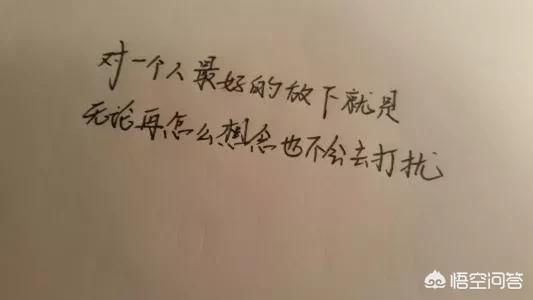 对一个人最好的放下就是
无论再怎么想念也不会去打扰
悟空问答